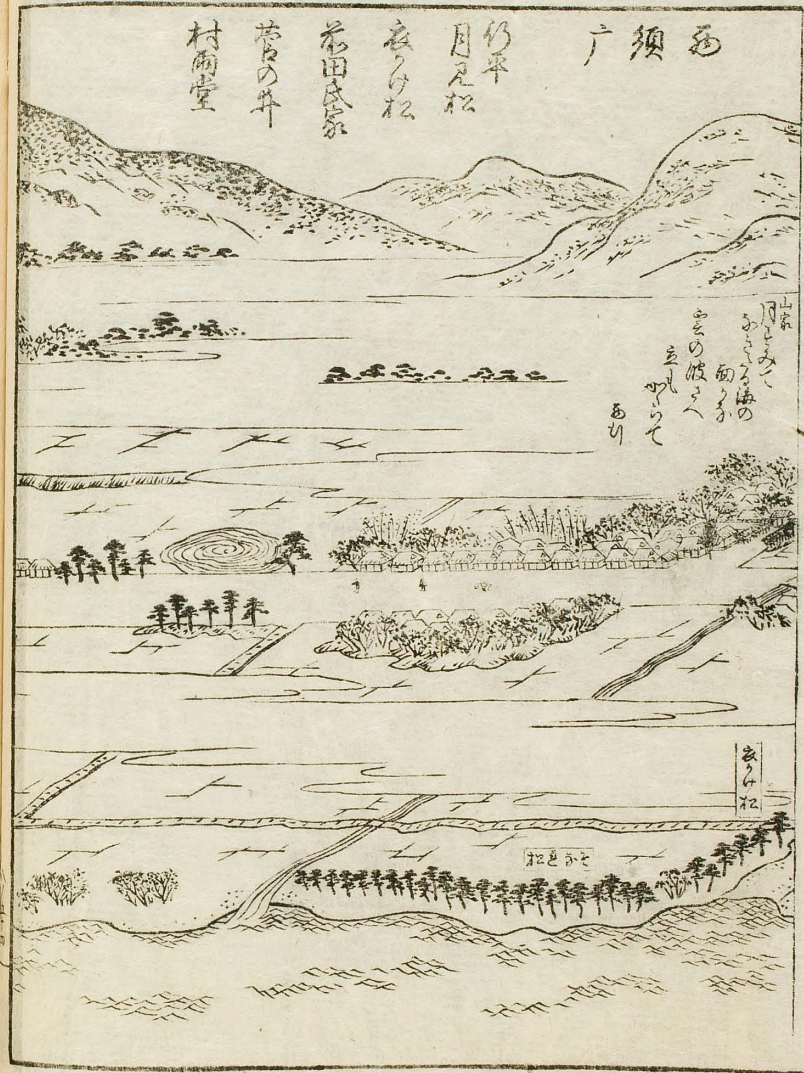 西須广
行平
月見松
衣かけ松
前田氏家
菅の井
村雨堂
山家
月すみて
なきたる海の
面かな
雲の波さへ
立も
かゝらて
西行
衣かけ松
そなれ松